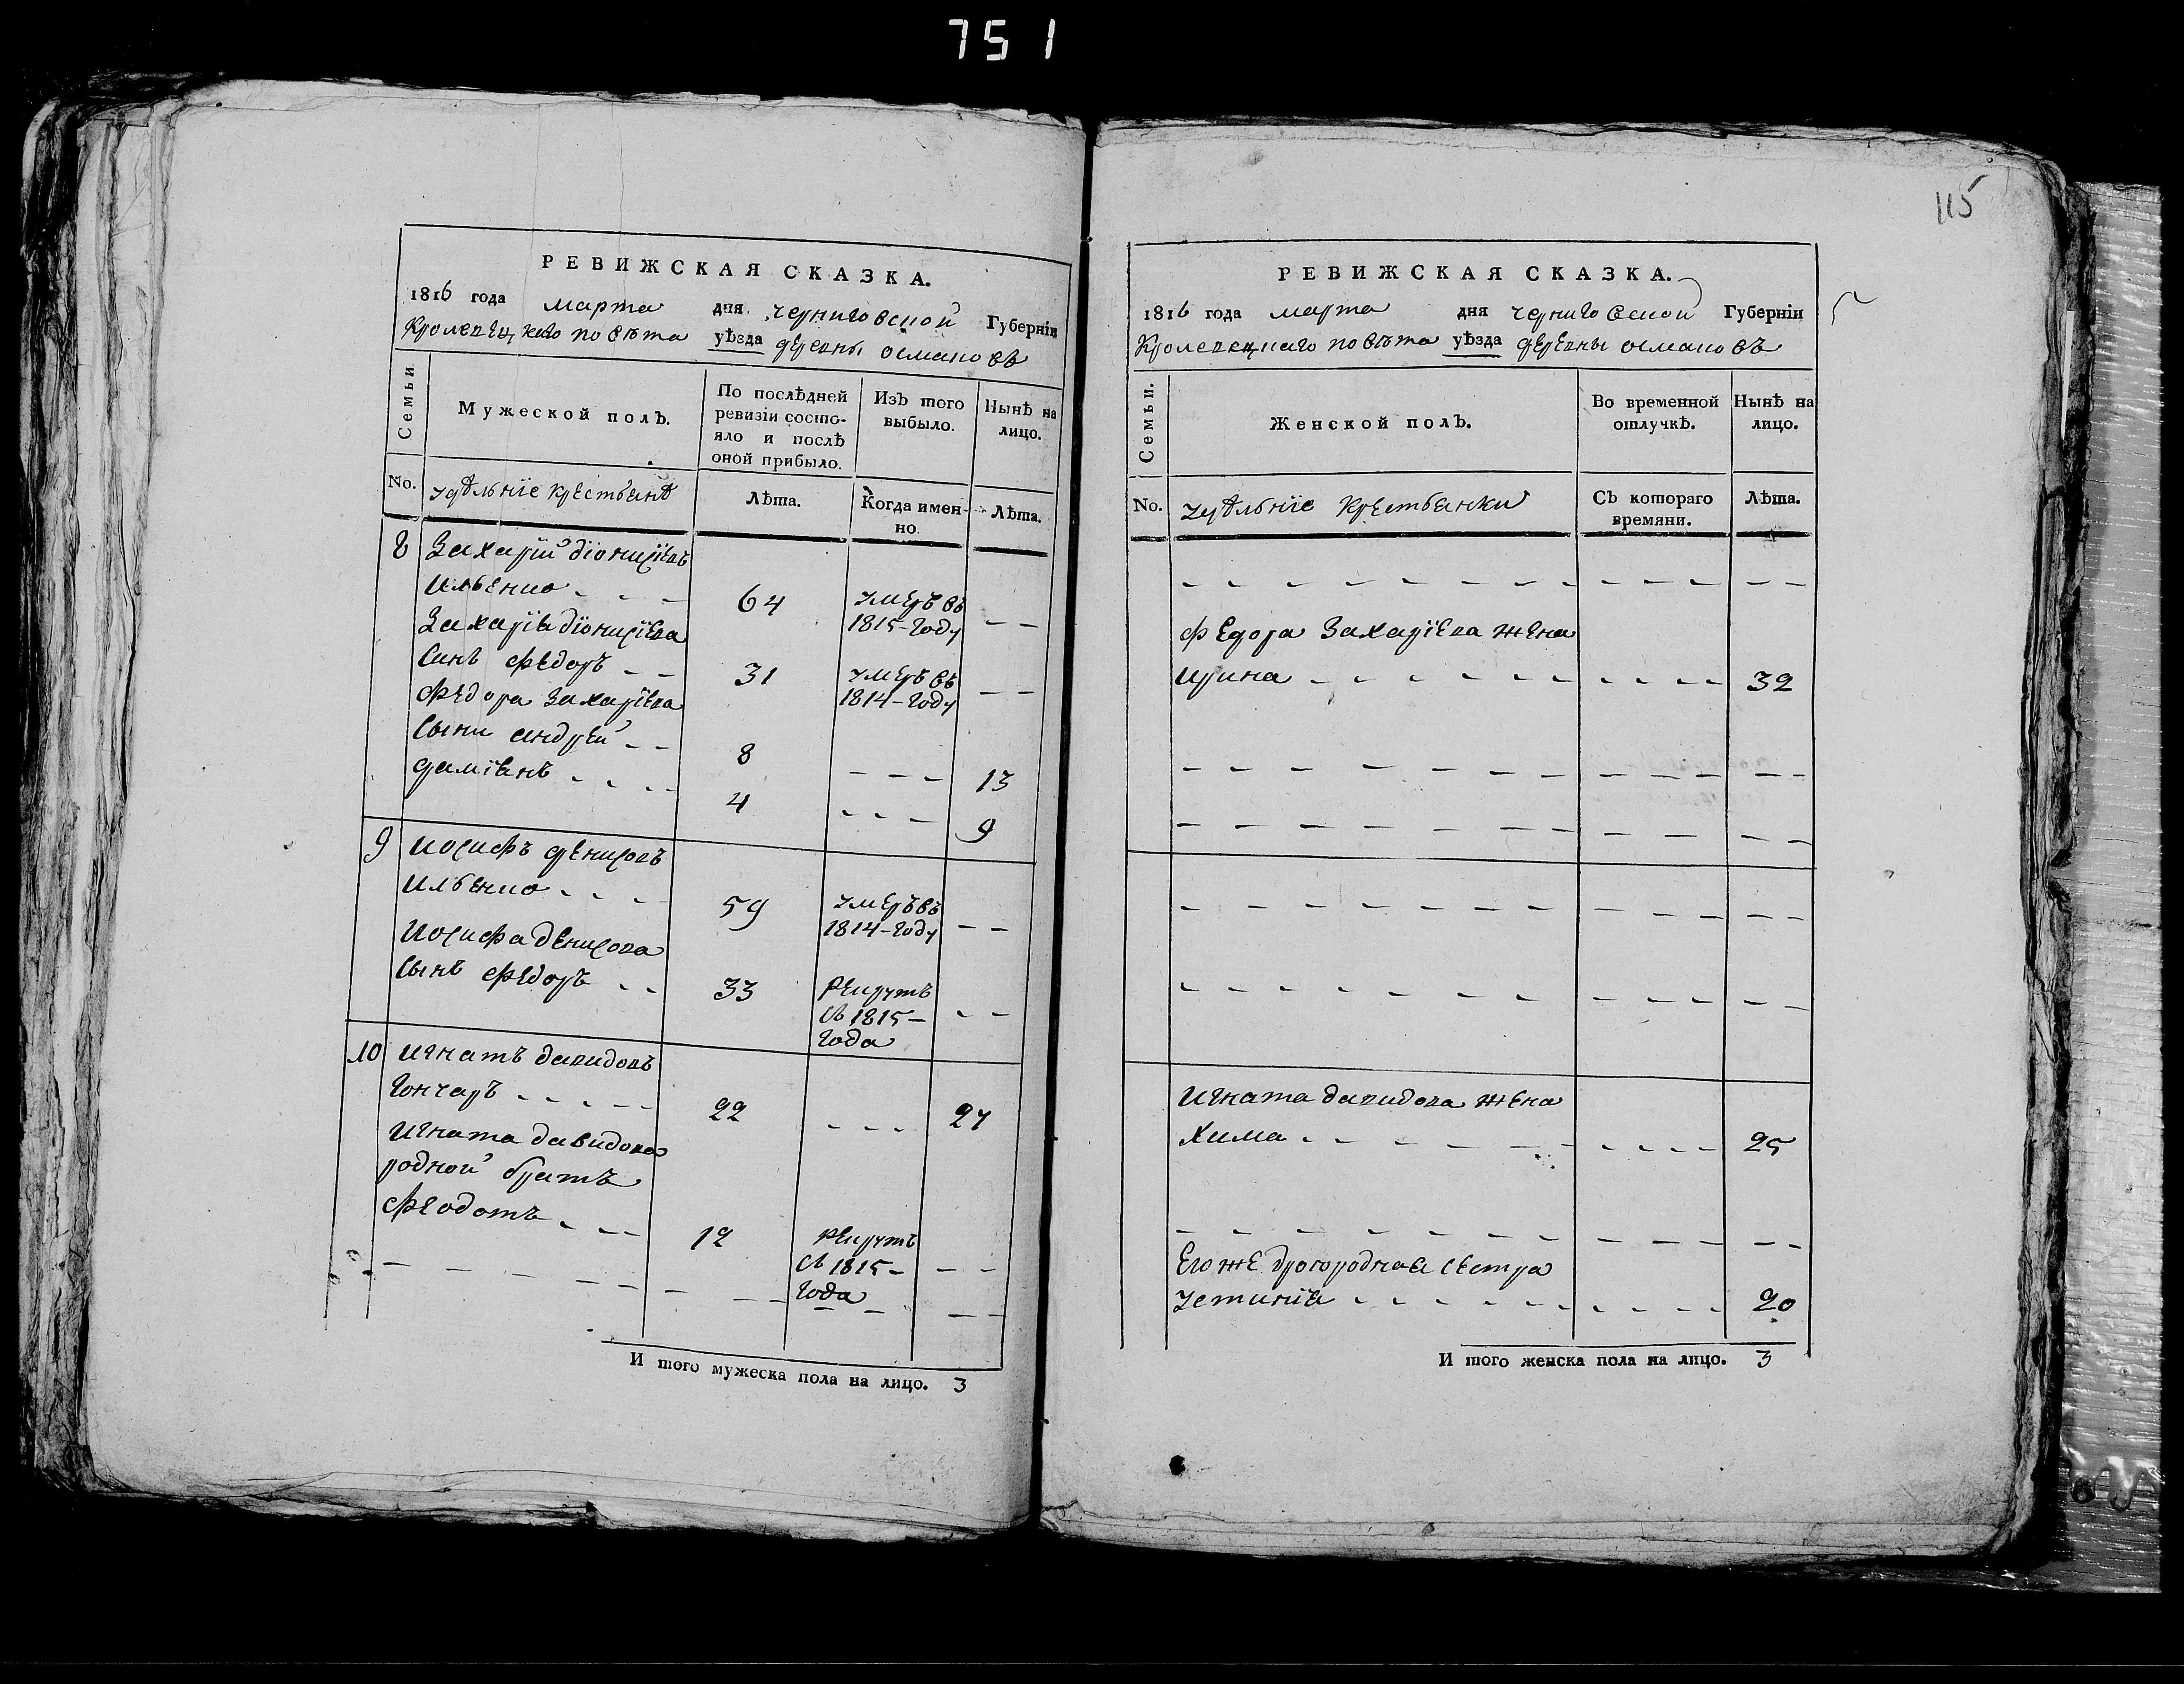 751
РЕВИЖСКАЯ СКАЗКА.
1816 года марта дня черниговской Губерніи
Кролевецкого повѣта уѣзда деревны османовъ
Семьи
Мужеской полъ.
По послѣдней ревизіи состо-яло и послѣ оной прибыло.
Изъ того выбыло.
Нынѣ на лицо.
No.
удѣлнїе крестьянѣ
Лѣта.
Когда имен-но.
Лѣта.
8 Захарій діонисіевъ
Ильенко 64 умеръ въ
1815-году
Захарія діонисіева
Синъ Федоръ 31 умеръ въ
1814-году
Федора Захаріева
Сыни андрей 8 13
даміянъ 4 9
9 Иосифъ денисовъ
Ильенко 59 умеръ въ
1814-году
Иосифа денисова
Сынъ Федоръ 33 рекрутъ
съ 1815-
года
10 Игнатъ давидовъ
Гончаръ 22 27
Игната давидова
родной братъ
Феодотъ 12 рекрутъ
съ 1815-
года
И того мужеска пола на лицо. 3
115
РЕВИЖСКАЯ СКАЗКА.
1816 года марта дня черниговской Губерніи
Кролевецкаго повѣта уѣзда деревны османовъ
Семьи.
Женской полъ.
Во временной отлучкѣ.
Нынѣ на лицо.
No.
удѣлнїе крестьянки
Съ котораго времяни.
Лѣта.
Федора Захаріева жена
Ирина 32
Игната давидова жена
Хима 25
Его же другородная сестра
Устинія 20
И того женска пола на лицо. 3